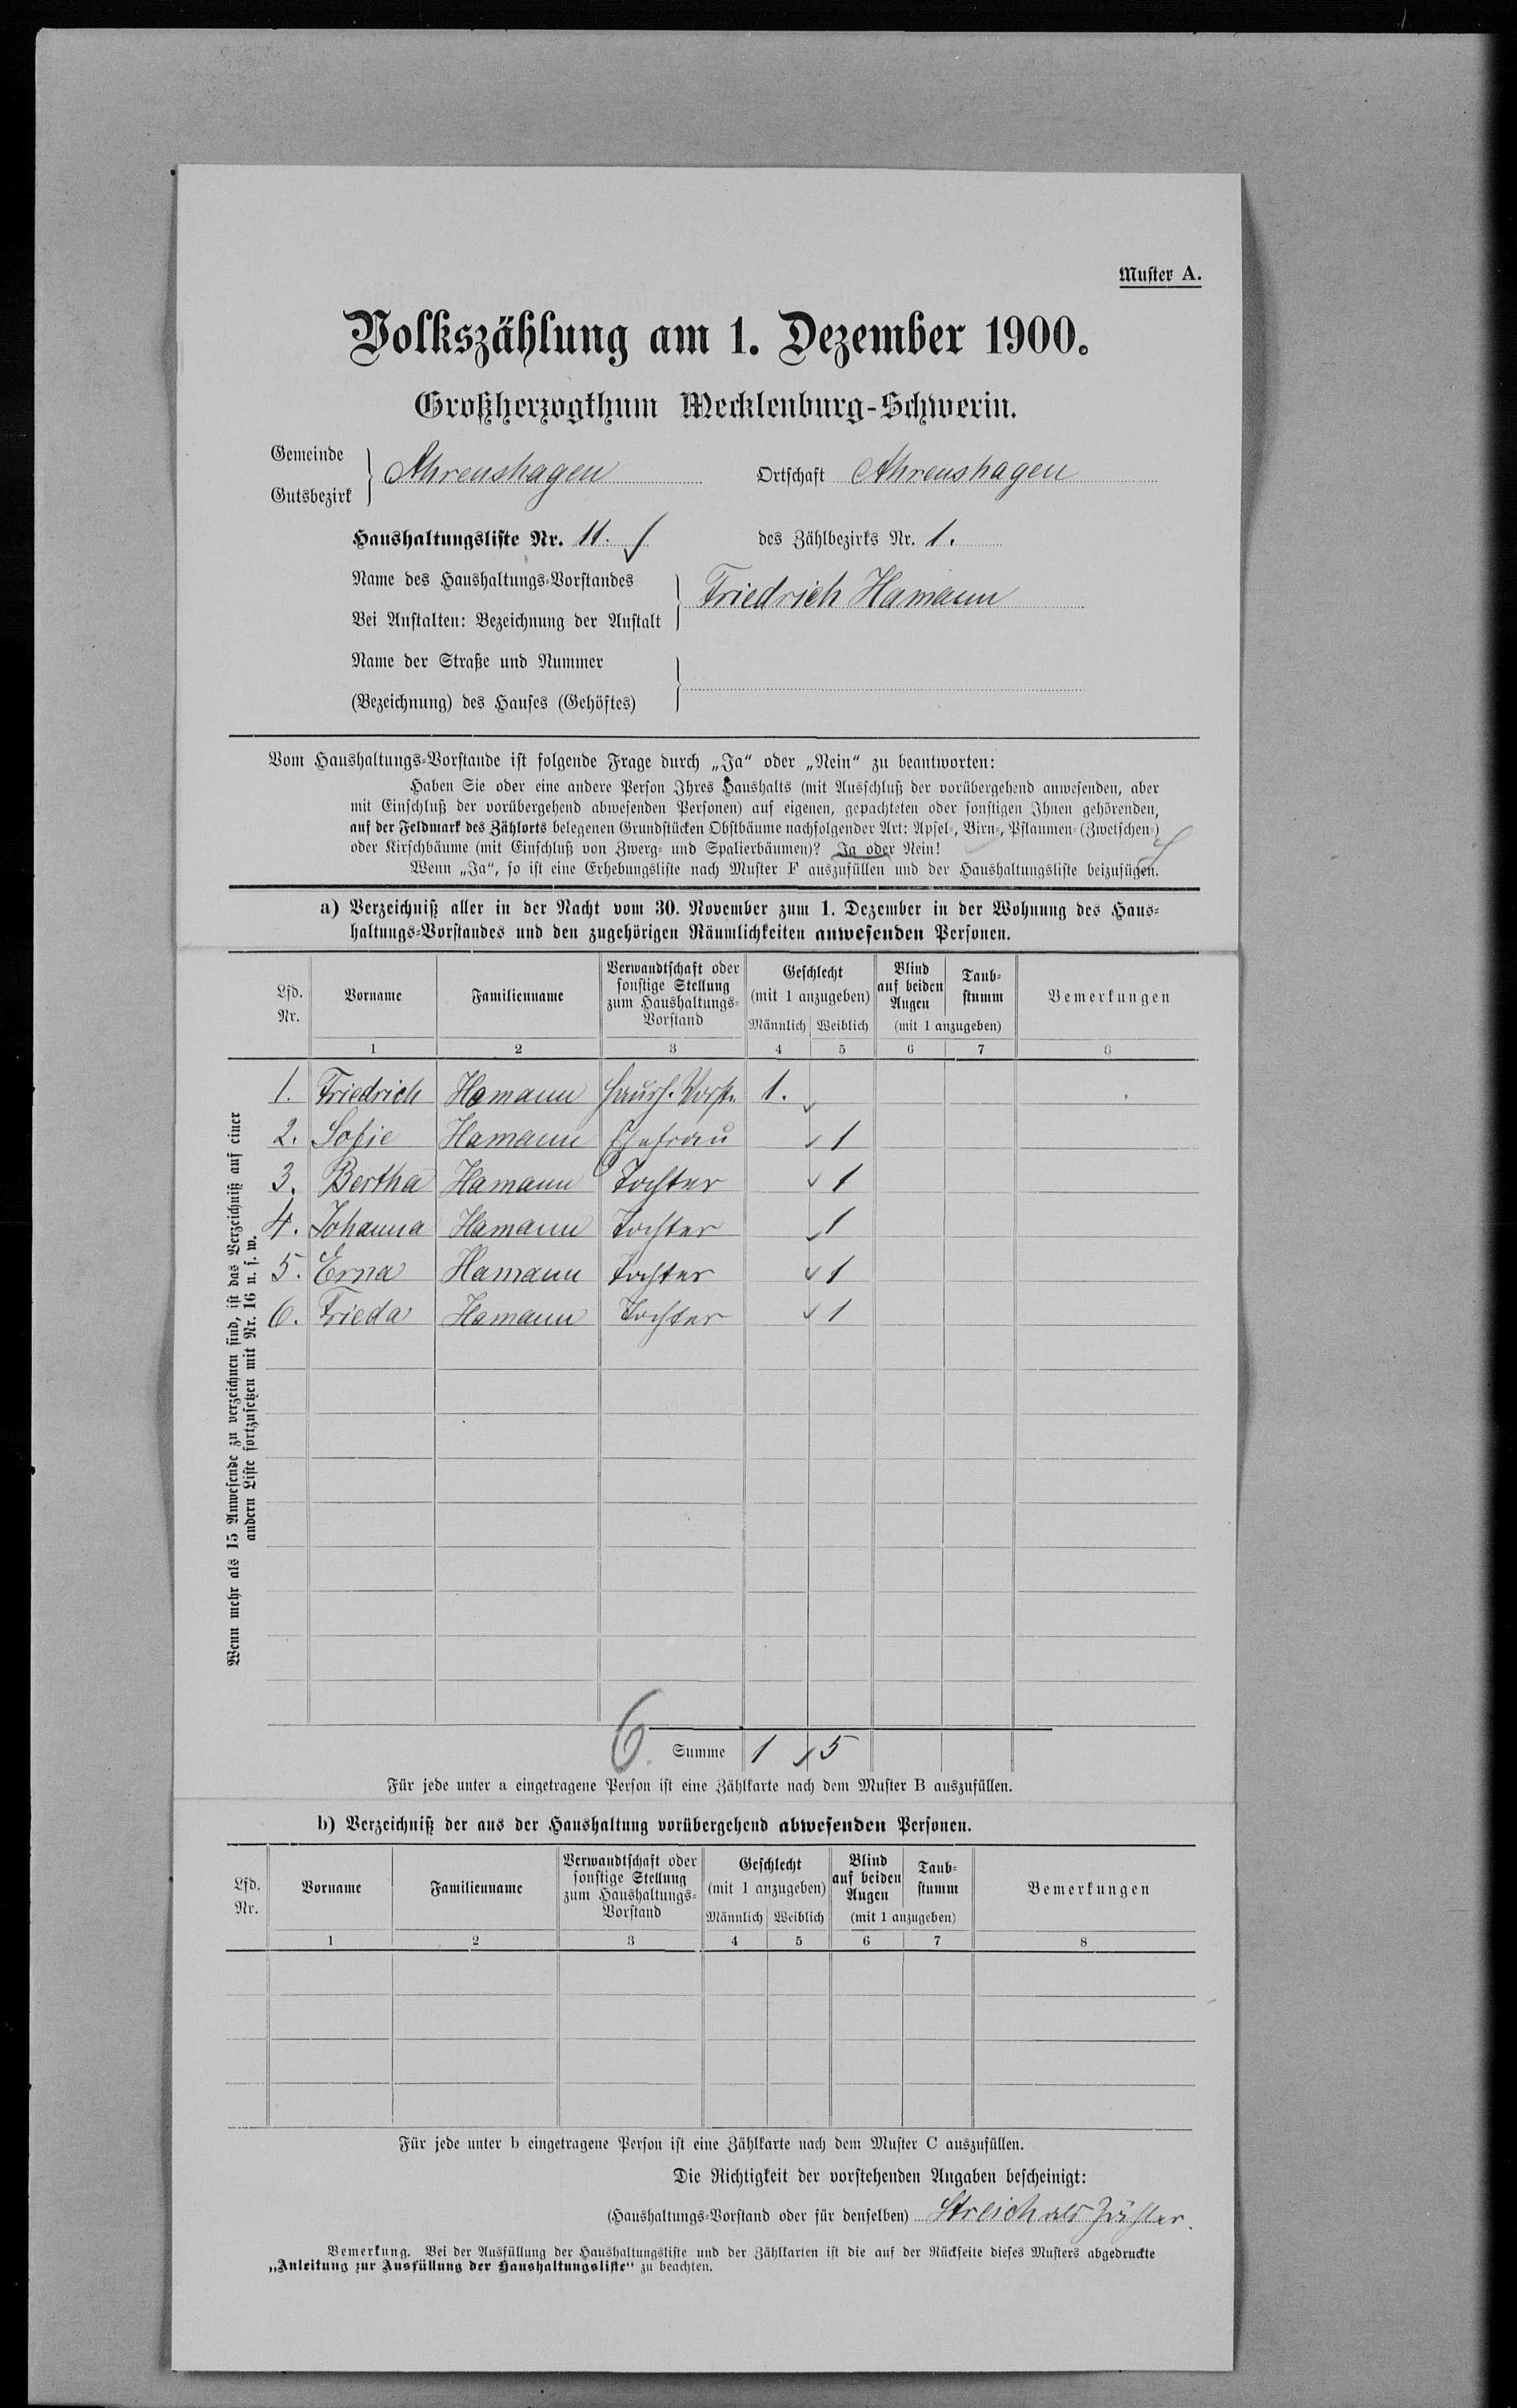 Muster A.
Volkszählung am 1. Dezember 1900.
Großherzogthum Mecklenburg-Schwerin.
Gemeinde
Gutsbezirk
Ahrenshagen Ortschaft Ahrenshagen
Haushaltungsliste Nr. 11. des Zählbezirks Nr. 1.
Name des Haushaltungs-Vorstandes
Bei Anstalten: Bezeichnung der Anstalt
Friedrich Hamann
Name der Straße und Nummer
(Bezeichnung) des Hauses (Gehöftes)
Vom Haushaltungs-Vorstande ist folgende Frage durch „Ja“ oder „Nein“ zu beantworten:
Haben Sie oder eine andere Person Ihres Haushalts (mit Ausschluß der vorübergehend anwesenden, aber
mit Einschluß der vorübergehend abwesenden Personen) auf eigenen, gepachteten oder sonstigen Ihnen gehörenden,
auf der Feldmark des Zählorts belegenen Grundstücken Obstbäume nachfolgender Art: Apfel-, Birn-, Pflaumen- (Zwetschen-)
oder Kirschbäume (mit Einschluß von Zwerg- und Spalierbäumen)? Ja oder Nein!
Wenn „Ja“, so ist eine Erhebungsliste nach Muster F auszufüllen und der Haushaltungsliste beizufügen.
a) Verzeichniß aller in der Nacht vom 30. November zum 1. Dezember in der Wohnung des Haus-
haltungs-Vorstandes und den zugehörigen Räumlichkeiten anwesenden Personen.
Lfd. Nr. Vorname Familienname Verwandtschaft oder sonstige Stellung zum Haushaltungs-Vorstand Geschlecht (mit 1 anzugeben) Männlich Weiblich Blind auf beiden Augen Taub-stumm (mit 1 anzugeben) Bemerkungen
1 2 3 4 5 6 7 8
1. Friedrich Hamann Haush. Vorst. 1.
2. Sofie Hamann Ehefrau 1
3. Bertha Hamann Tochter 1
4. Johanna Hamann Tochter 1
5. Erna Hamann Tochter 1
6. Frieda Hamann Tochter 1
Wenn mehr als 15 Anwesende zu verzeichnen sind, ist das Verzeichniß auf einer
andern Liste fortzusetzen mit Nr. 16 u. s. w.
6. Summe 1 5
Für jede unter a eingetragene Person ist eine Zählkarte nach dem Muster B auszufüllen.
b) Verzeichniß der aus der Haushaltung vorübergehend abwesenden Personen.
Lfd. Nr. Vorname Familienname Verwandtschaft oder sonstige Stellung zum Haushaltungs-Vorstand Geschlecht (mit 1 anzugeben) Männlich Weiblich Blind auf beiden Augen Taub-stumm (mit 1 anzugeben) Bemerkungen
1 2 3 4 5 6 7 8
Für jede unter b eingetragene Person ist eine Zählkarte nach dem Muster C auszufüllen.
Die Richtigkeit der vorstehenden Angaben bescheinigt:
(Haushaltungs-Vorstand oder für denselben) Streich als Zähler.
Bemerkung. Bei der Ausfüllung der Haushaltungsliste und der Zählkarten ist die auf der Rückseite dieses Musters abgedruckte
„Anleitung zur Ausfüllung der Haushaltungsliste“ zu beachten.